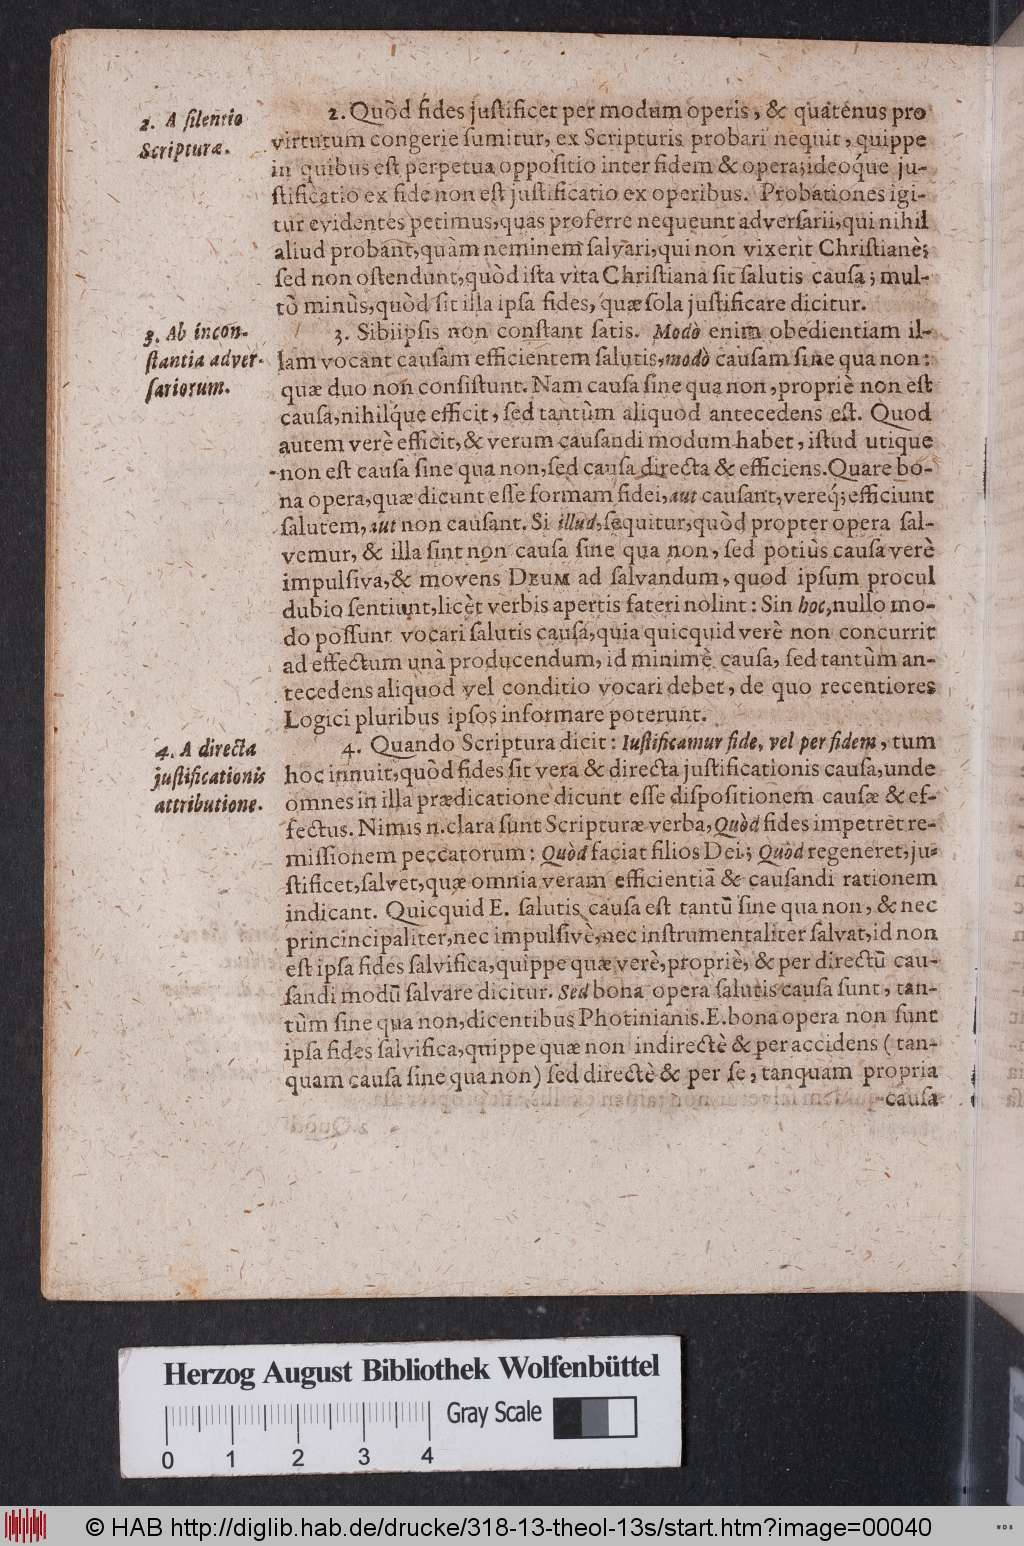 2. A ſilentio
Scripturæ.
2. Quòd fides juſtificet per modum operis, & quatenus pro
virtutum congerie ſumitur, ex Scripturis probari nequit, quippe
in quibus eſt perpetua oppoſitio inter fidem & opera; ideoq́ue ju-
ſtificatio ex fide non eſt juſtificatio ex operibus. Probationes igi-
tur evidentes petimus, quas proferre nequeunt adverſarii, qui nihil
aliud probant, quàm neminem ſalvari, qui non vixerit Chriſtianè;
ſed non oſtendunt, quòd iſta vita Chriſtiana ſit ſalutis cauſa; mul-
tò minùs, quòd ſit illa ipſa fides, quæ ſola juſtificare dicitur.
3. Ab incon-
ſtantia adver-
ſariorum.
3. Sibiipſis non conſtant ſatis. Modò enim obedientiam il-
lam vocant cauſam efficientem ſalutis, modò cauſam ſine qua non:
quæ duo non conſiſtunt. Nam cauſa ſine qua non, propriè non eſt
cauſa, nihilq́ue efficit, ſed tantùm aliquod antecedens eſt. Quod
autem verè efficit, & verum cauſandi modum habet, iſtud utique
non eſt cauſa ſine qua non, ſed cauſa directa & efficiens. Quare bo-
na opera, quæ dicunt eſſe formam fidei, aut cauſant, vereq́; efficiunt
ſalutem, aut non cauſant. Si illud, ſequitur, quòd propter opera ſal-
vemur, & illa ſint non cauſa ſine qua non, ſed potiùs cauſa verè
impulſiva, & movens DEUM ad ſalvandum, quod ipſum procul
dubio ſentiunt, licèt verbis apertis fateri nolint: Sin hoc, nullo mo-
do poſſunt vocari ſalutis cauſa, quia quicquid verè non concurrit
ad effectum unà producendum, id minimè cauſa, ſed tantùm an-
tecedens aliquod vel conditio vocari debet, de quo recentiores
Logici pluribus ipſos informare poterunt.
4. A directa
juſtificationis
attributione.
4. Quando Scriptura dicit: Iuſtificamur fide, vel per fidem, tum
hoc innuit, quòd fides ſit vera & directa juſtificationis cauſa, unde
omnes in illa prædicatione dicunt eſſe diſpoſitionem cauſæ & ef-
fectus. Nimis n. clara ſunt Scripturæ verba, Quòd fides impetret re-
miſſionem peccatorum: Quòd faciat filios Dei; Quòd regeneret, ju-
ſtificet, ſalvet, quæ omnia veram efficientiã & cauſandi rationem
indicant. Quicquid E. ſalutis cauſa eſt tantũ ſine qua non, & nec
princincipaliter, nec impulſivè, nec inſtrumentaliter ſalvat, id non
eſt ipſa fides ſalvifica, quippe quæ verè, propriè, & per directũ cau-
ſandi modũ ſalvare dicitur. Sed bona opera ſalutis cauſa ſunt, tan-
tùm ſine qua non, dicentibus Photinianis. E. bona opera non ſunt
ipſa fides ſalvifica, quippe quæ non indirectè & per accidens (tan-
quam cauſa ſine qua non) ſed directè & per ſe, tanquam propria
cauſa
Herzog August Bibliothek Wolfenbüttel
Gray Scale
0 1 2 3 4
© HAB http://diglib.hab.de/drucke/318-13-theol-13s/start.htm?image=00040